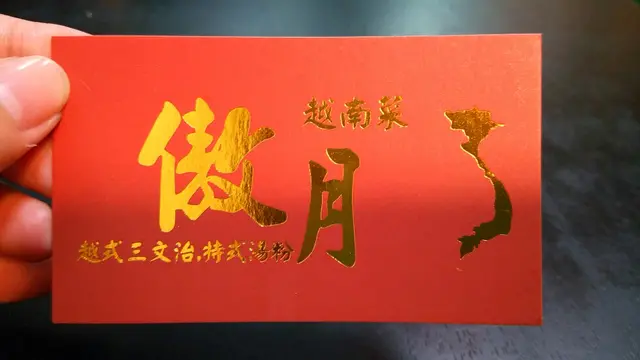 越南菜
傲月
越式三文治,特式湯粉